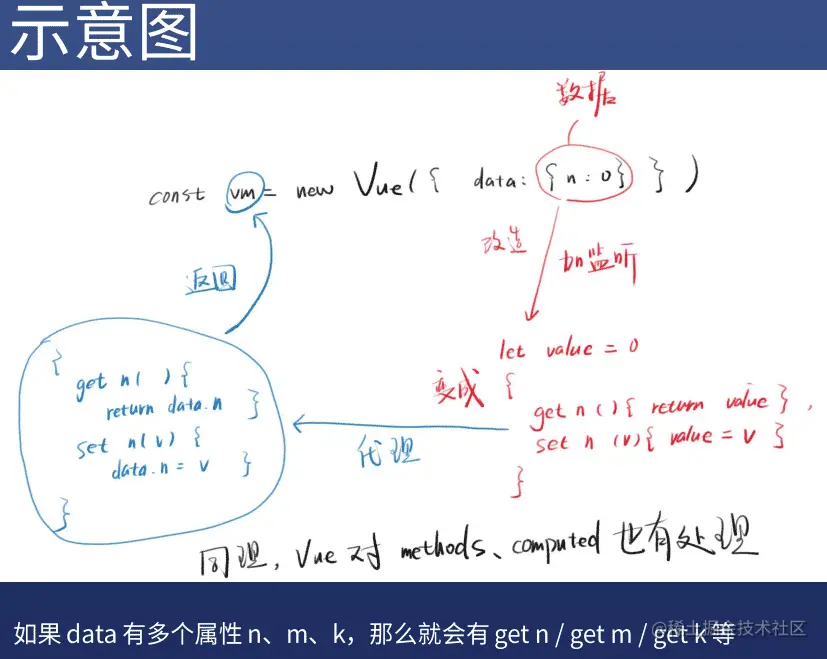 示意图
数据
const vm = new Vue({ data: {n:0} })
改造
加监听
返回
let value = 0
变成
{
get n(){ return value },
set n(v){ value = v }
}
代理
{
get n( ){
return data.n }
set n(v) {
data.n = v }
}
同理,Vue 对 methods、computed 也有处理
如果 data 有多个属性 n、m、k,那么就会有 get n / get m / get k 等
@稀土掘金技术社区